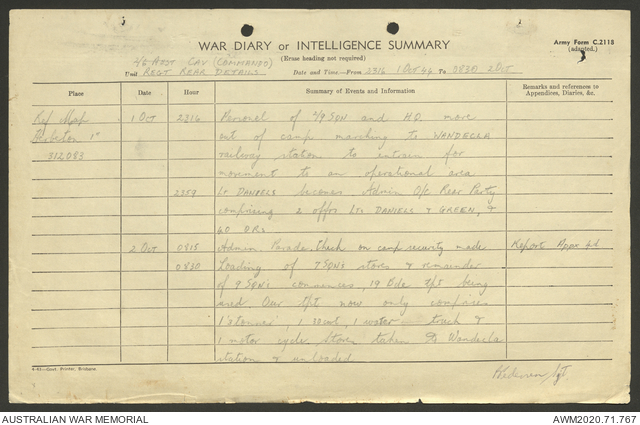 WAR DIARY or INTELLIGENCE SUMMARY
(Erase heading not required)
Army Form C.2118
(adapted.)
2/6 AUST CAV (COMMANDO)
Unit REGT REAR DETAILS Date and Time—From 2316 1 Oct 44 To 0830 2 Oct
Place
Date
Hour
Summary of Events and Information
Remarks and references to Appendices, Diaries, &c.
Ref Map 1 Oct 2316 Personel of 2/9 SQN and H.Q. move
1" out of camp marching to WANDECLA
312083 railway station to entrain for
movement to an operational area
2359 Lt DANIELS becomes Admin O/c Rear Party
comprising 2 offrs Lts DANIELS & GREEN, &
20 ORs
2 Oct 0815 Admin Parade, check on camp security made Report Appx
0830 Loading of 7 SQN's stores & remainder
of 9 SQN's commences, 19 Bde tpt being
used. Our tpt now only comprises
1 water truck &
1 motor cycle. Stores taken to Wandecla
station & unloaded
Sgt
AUSTRALIAN WAR MEMORIAL
AWM2020.71.767